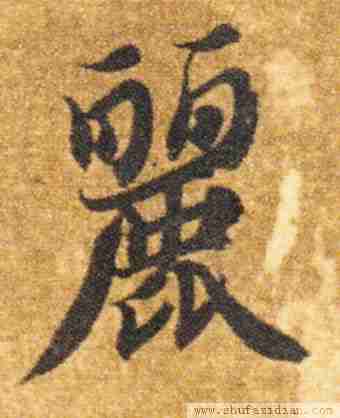 麗
www.shufazidian.com